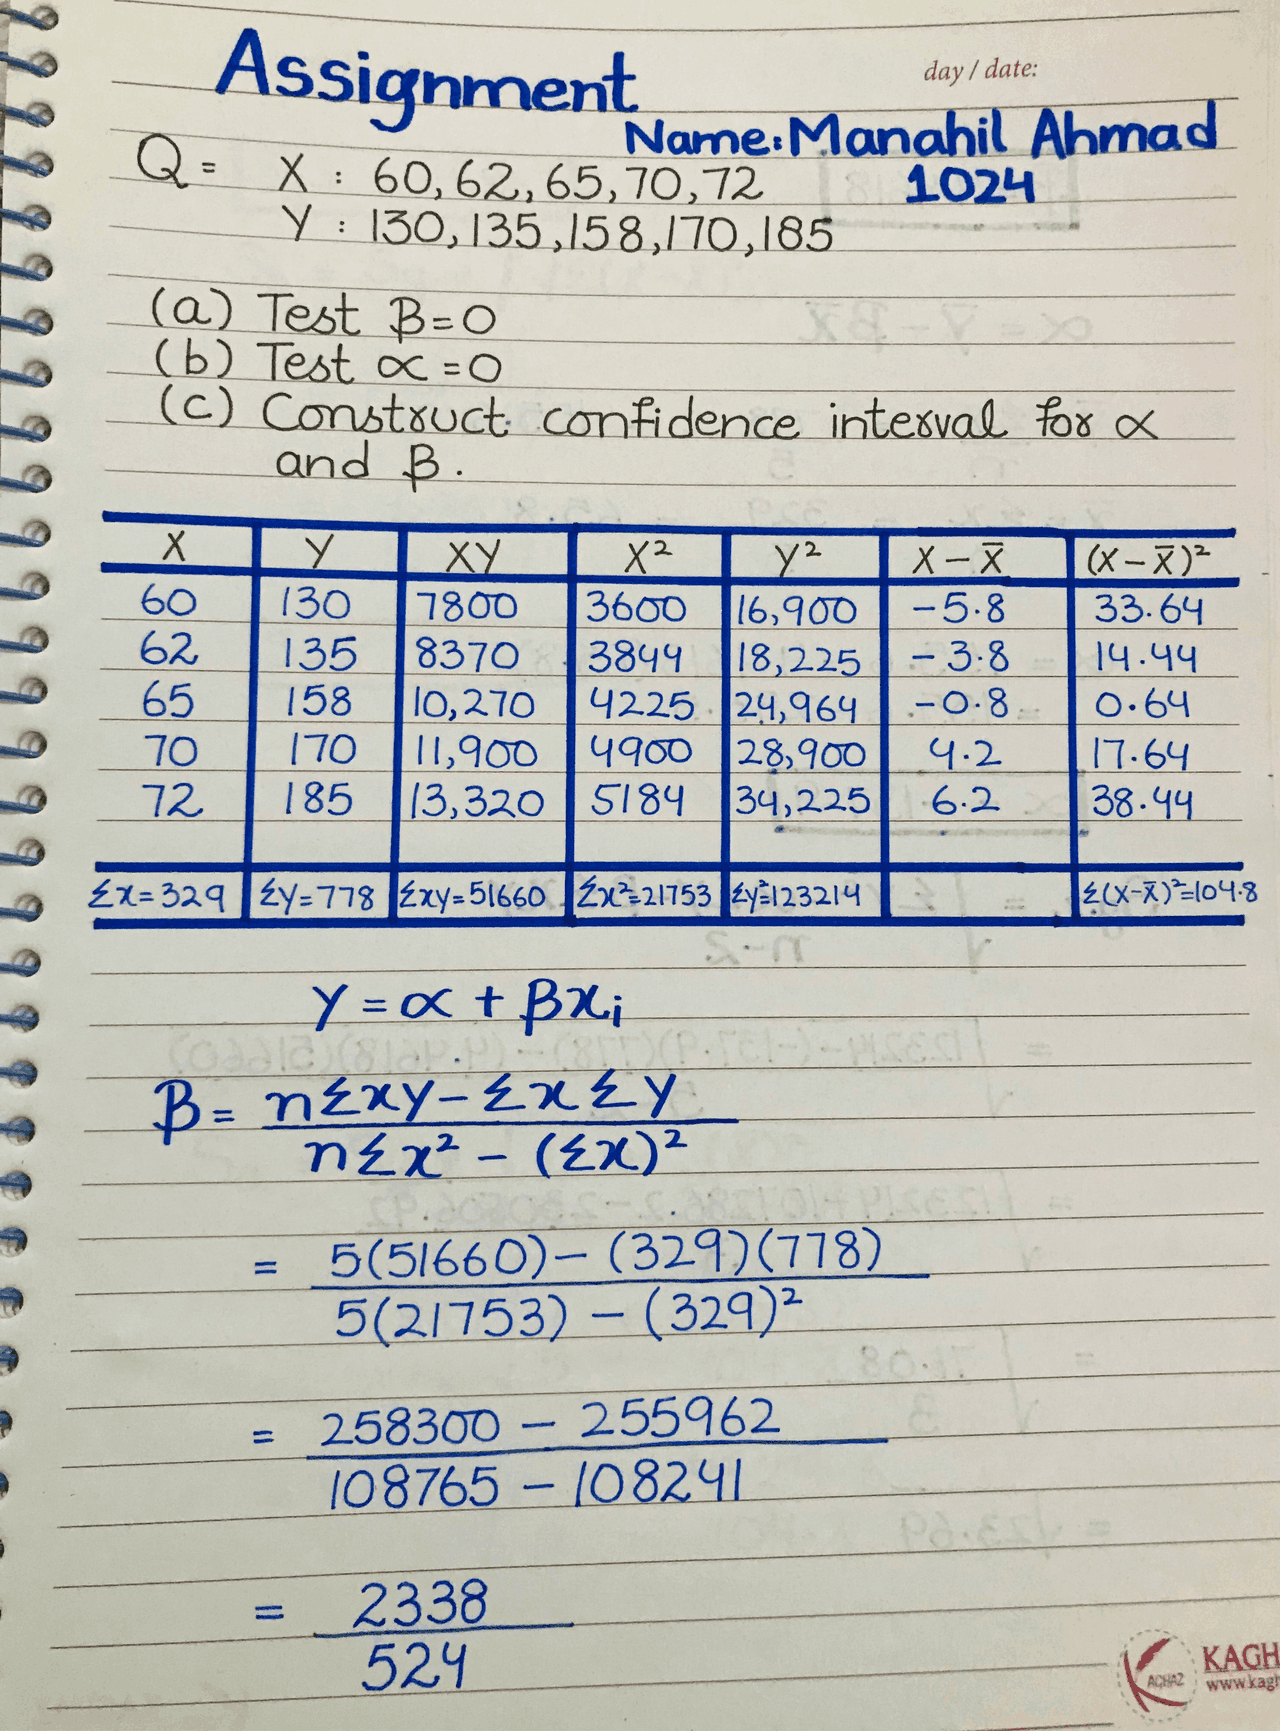 Assignment
day / date:
Name: Manahil Ahmad
1024
Q = X : 60, 62, 65, 70, 72
Y : 130, 135, 158, 170, 185
(a) Test β = 0
(b) Test α = 0
(c) Construct confidence interval for α
and β.
X Y XY X² Y² X – X̄ (X – X̄)²
60 130 7800 3600 16,900 –5.8 33.64
62 135 8370 3844 18,225 –3.8 14.44
65 158 10,270 4225 24,964 –0.8 0.64
70 170 11,900 4900 28,900 4.2 17.64
72 185 13,320 5184 34,225 6.2 38.44
Σx = 329 Σy = 778 Σxy = 51660 Σx² = 21753 Σy² = 123214 Σ(X – X̄)² = 104.8
Y = α + βxᵢ
β = nΣxy – ΣxΣy
nΣx² – (Σx)²
= 5(51660) – (329)(778)
5(21753) – (329)²
= 258300 – 255962
108765 – 108241
= 2338
524
KAGHAZ
KAGH
www.kagh